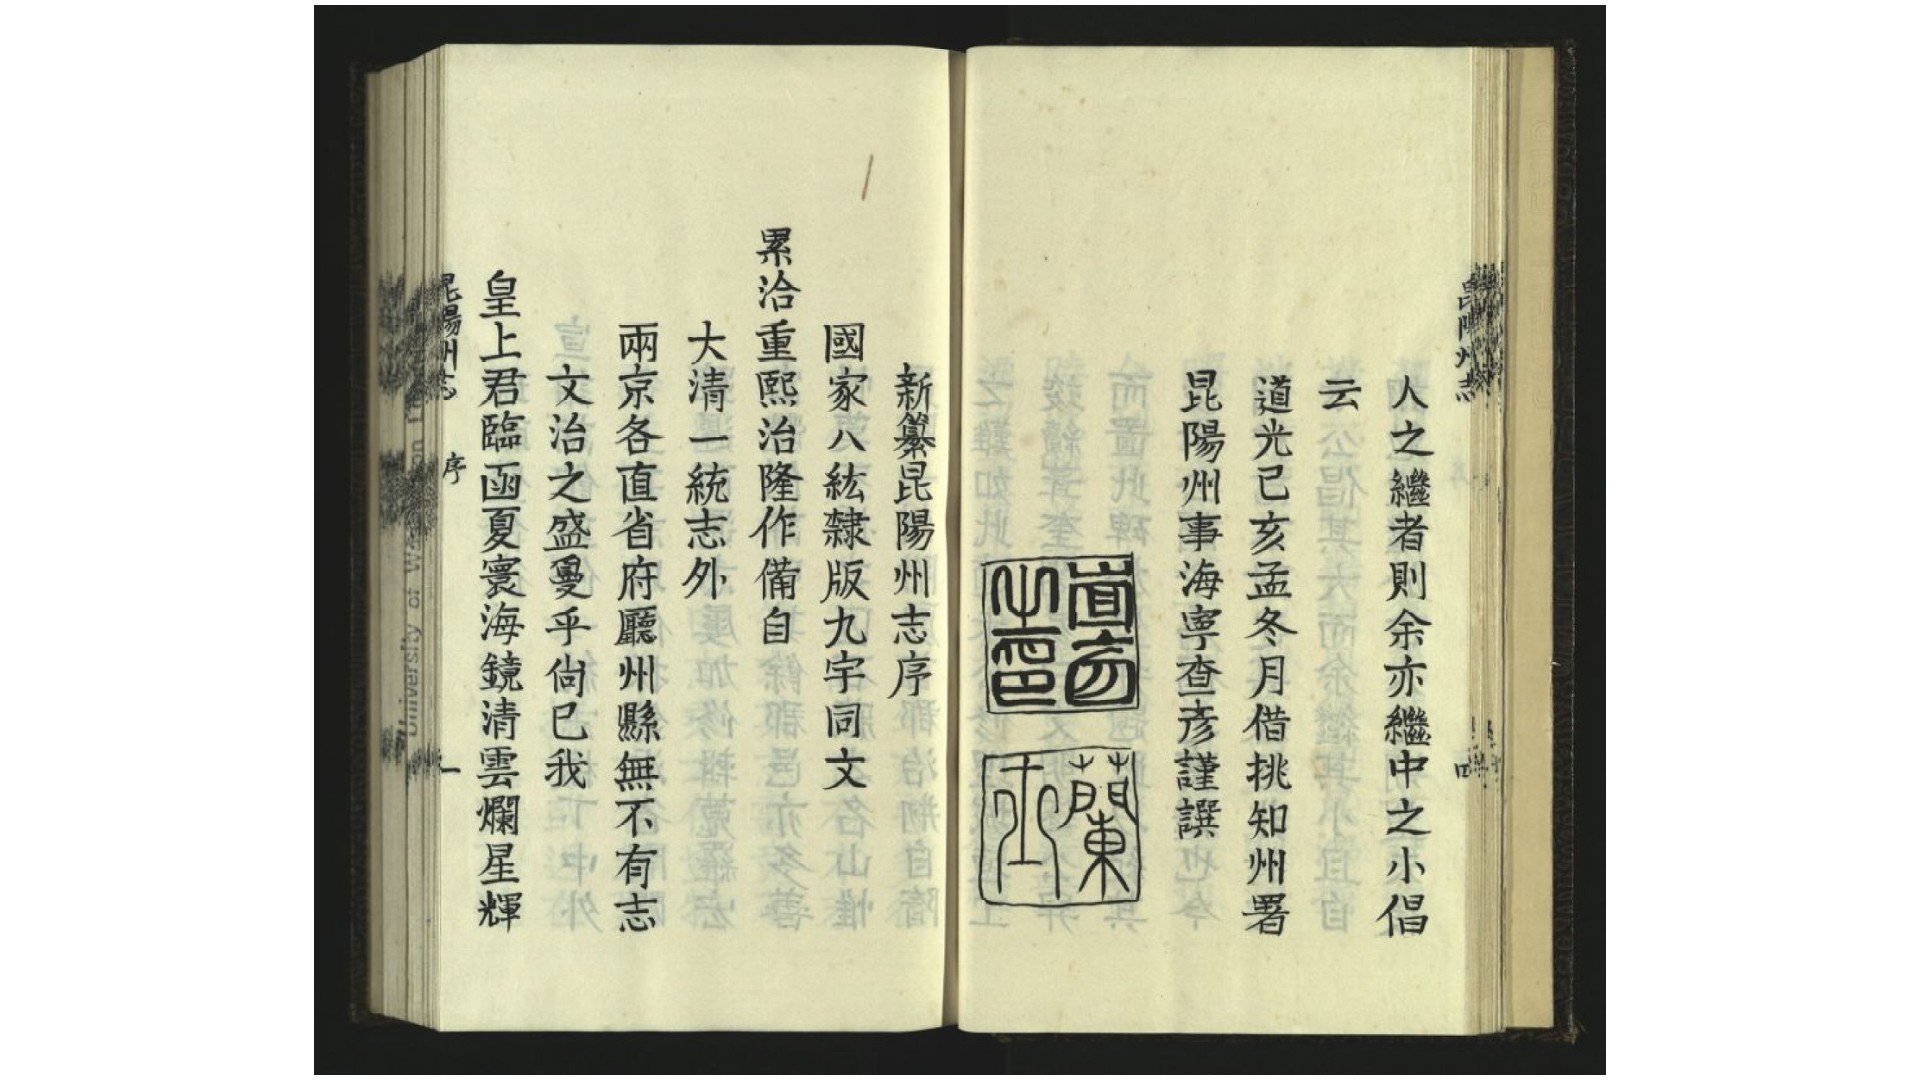 人之繼者則余亦繼中之小倡
云
道光己亥孟冬月借挑知州署
昆陽州事海寧查彥謹譔
蘭
新纂昆陽州志序
國家八紘隸版九宇同文
累洽重熙治隆作備自
大清一統志外
兩京各直省府廳州縣無不有志
文治之盛戞乎尙已我
皇上君臨函夏寰海鏡清雲爛星輝
昆陽州志
序
一